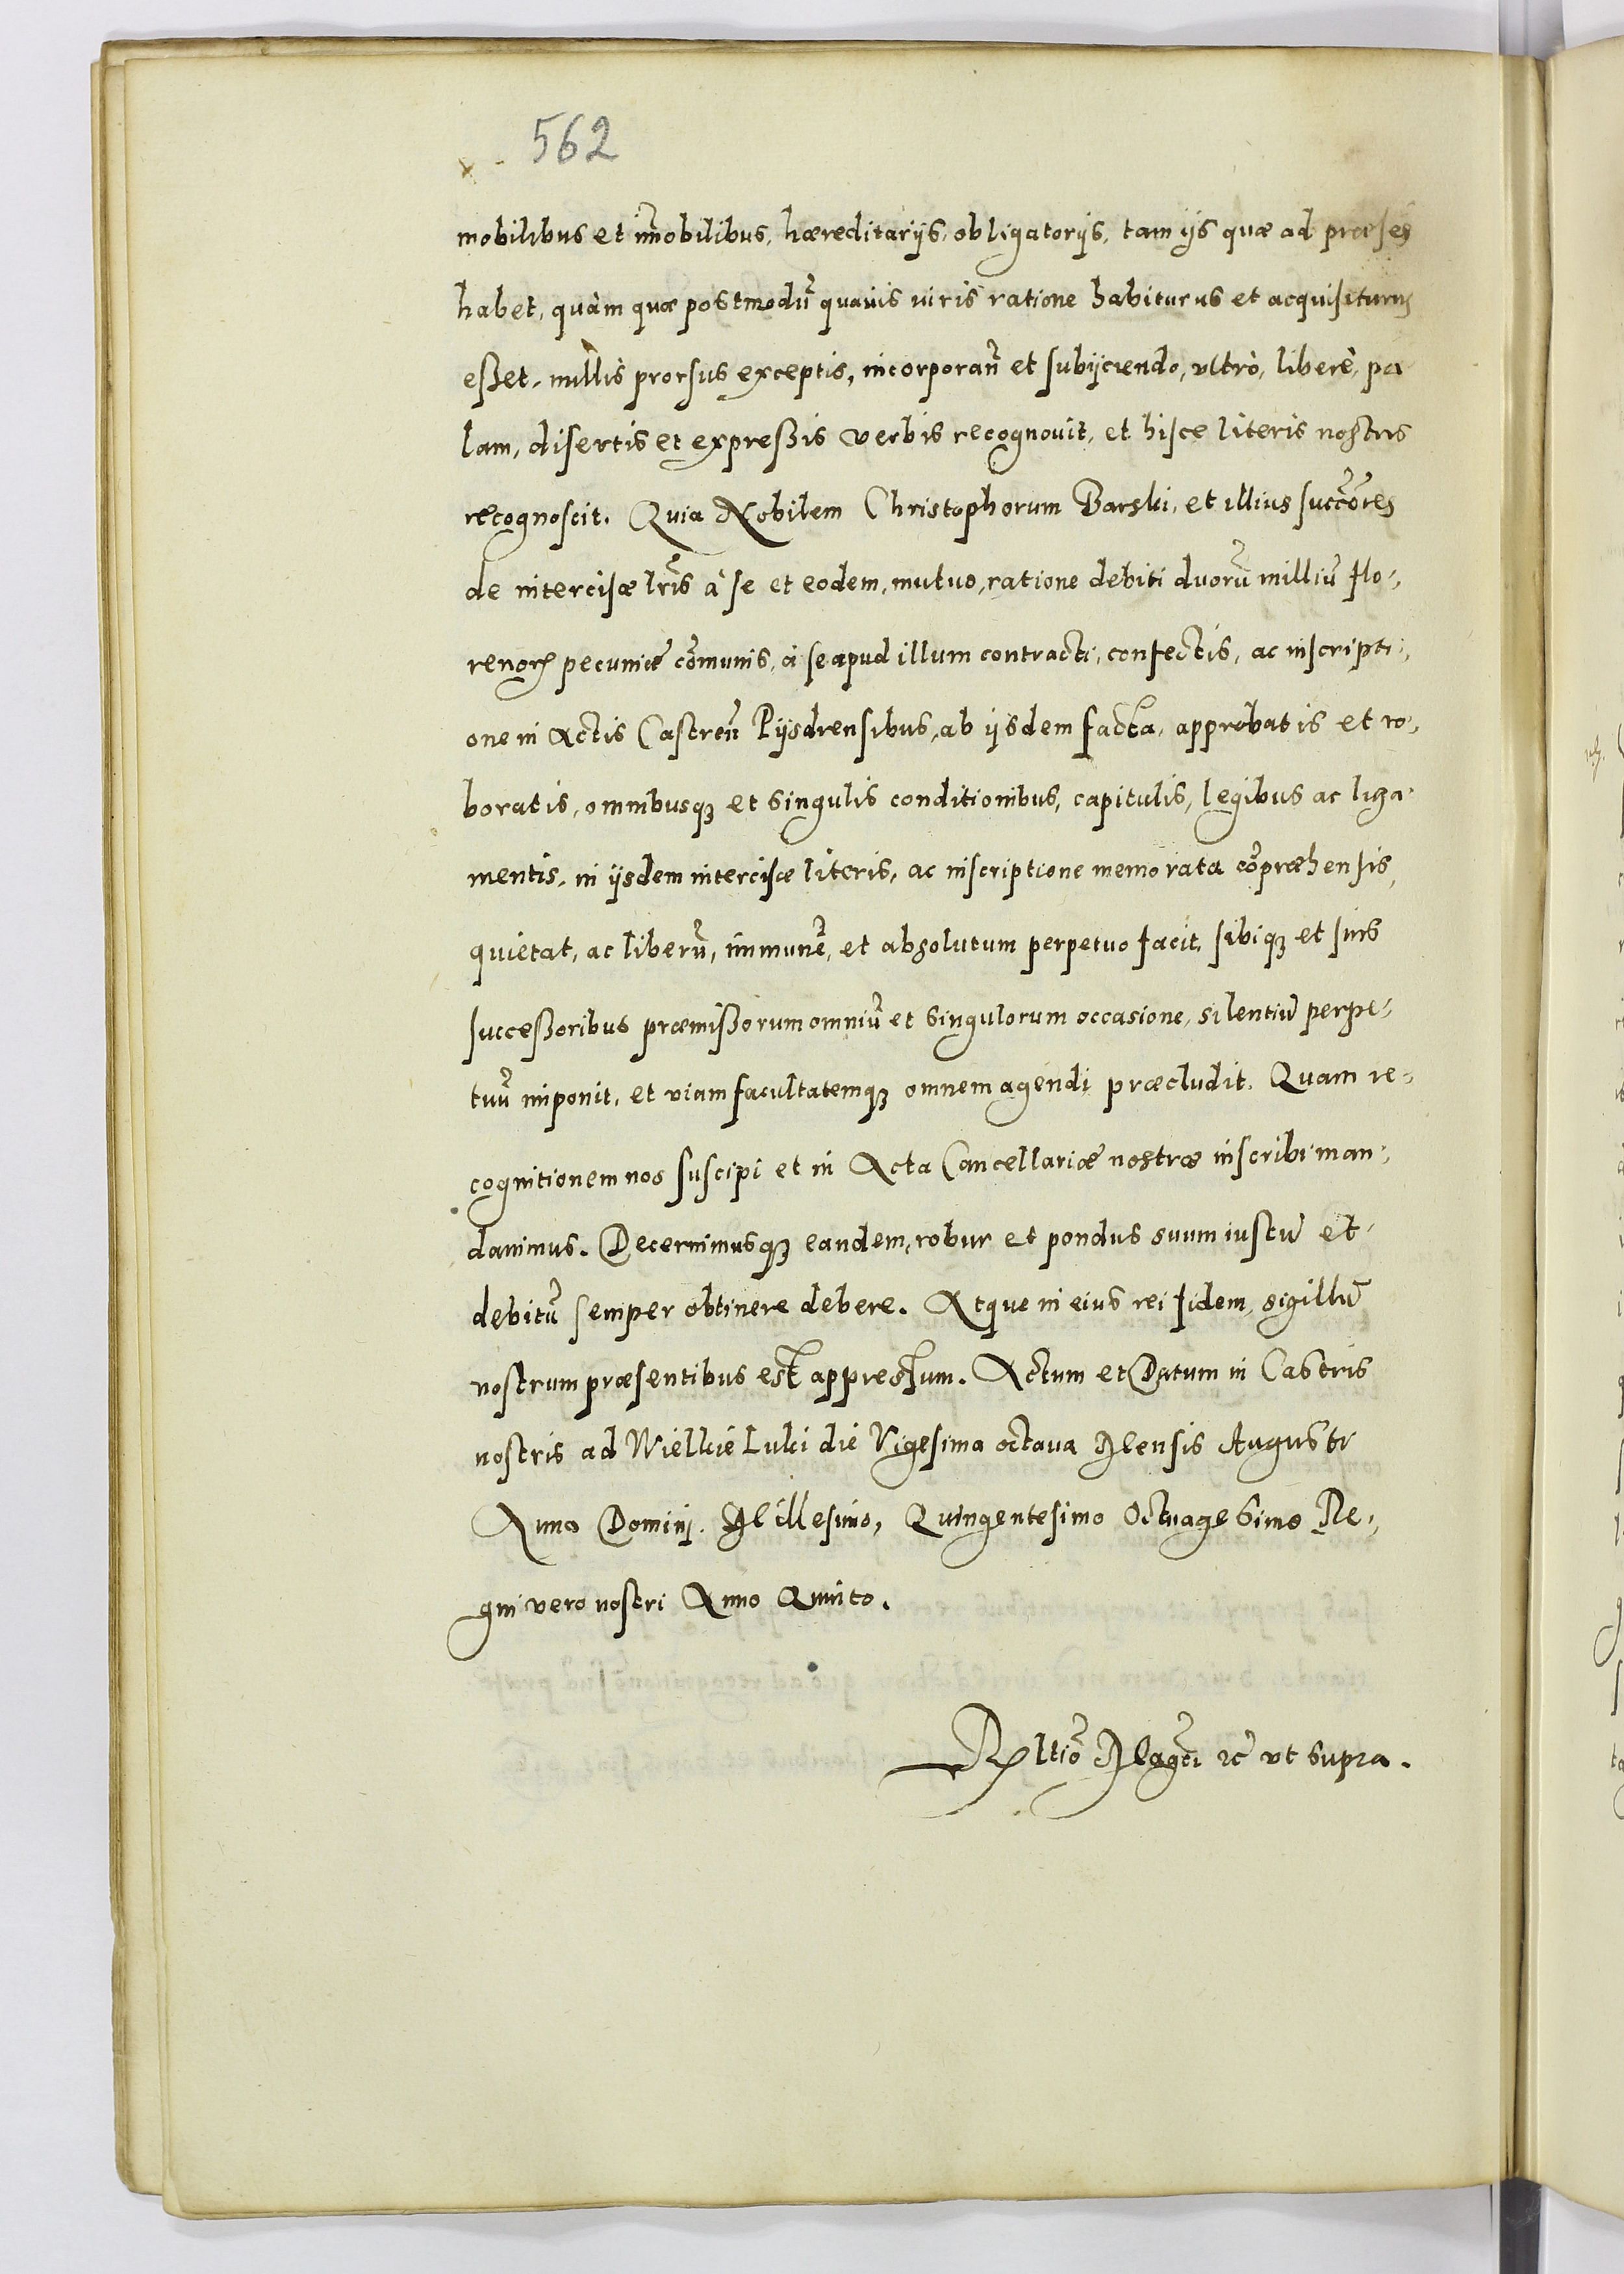 562
mobilibus et im̃obilibus, hæreditarijs, obligatorijs, tam ijs quæ ad præseñ
habet, quàm quæ postmodũ quavis iuris ratione habiturus et acquisiturus
eßet, nullis prorsus exceptis, incorporañ et subijciendo, ultrò, liberè, pa-
lam, disertis et expreßis verbis recognovit, et hisce literis nostris
recognoscit. Quia Nobilem Christophorum Barski, et illius succ̃ores
de intercisæ lr̃is à se et eodem, mutuo, ratione debiti duorũ milliũ flo-
renorꝝ pecuniæ com̃unis, à se apud illum contracti, confectis, ac inscripti-
one in Actis Castreñ Pijsdrensibus, ab ijsdem facta, approbatis et ro-
boratis, omnibusqꝫ et singulis conditionibus, capitulis, legibus ac liga-
mentis, in ijsdem intercisæ literis, ac inscriptione memorata cõpræhensis,
quietat, ac liberũ, immunẽ, et absolutum perpetuo facit, sibiqꝫ et suis
succeßoribus præmißorum omniũ et singulorum occasione, silentiũ perpe-
tuũ imponit, et viam facultatemqꝫ omnem agendi præcludit. Quam re-
cognitionem nos suscipi et in Acta Cancellariæ nostræ inscribi man-
davimus. Decernimusqꝫ eandem, robur et pondus suum iustũ et
debitũ semper obtinere debere. Atque in eius rei fidem, sigillũ
nostrum præsentibus est appressum. Actum et Datum in Castris
nostris ad Wielkie Luki die Vigesima octava Mensis Augusti
Anno Domini. Millesimo, Quingentesimo Octuagesimo Re-
gni vero nostri Anno Quinto.
Rltiõ Mag̃ci ꝛc̃ ut supra.